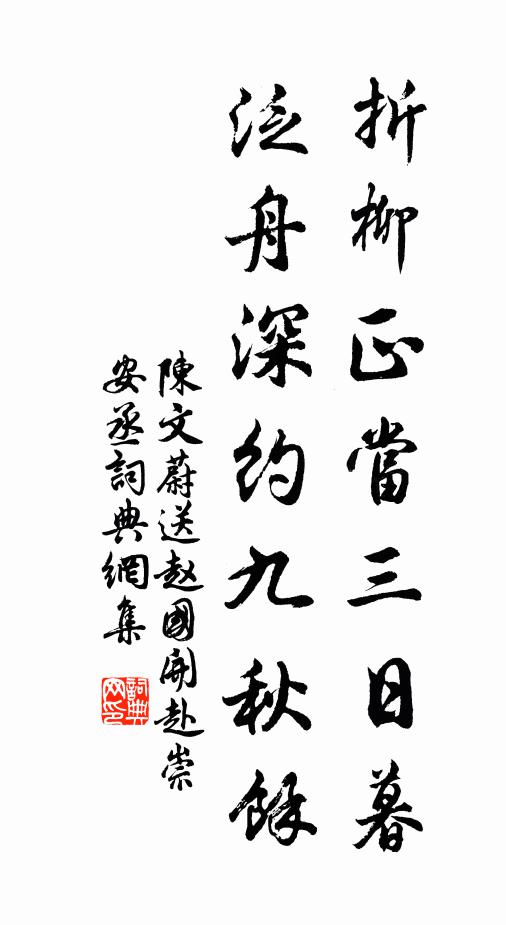 折柳正當三日暮
泛舟深約九秋餘
陳文蔚送赵國開赴崇
安丞詞典網集
詞典
网印